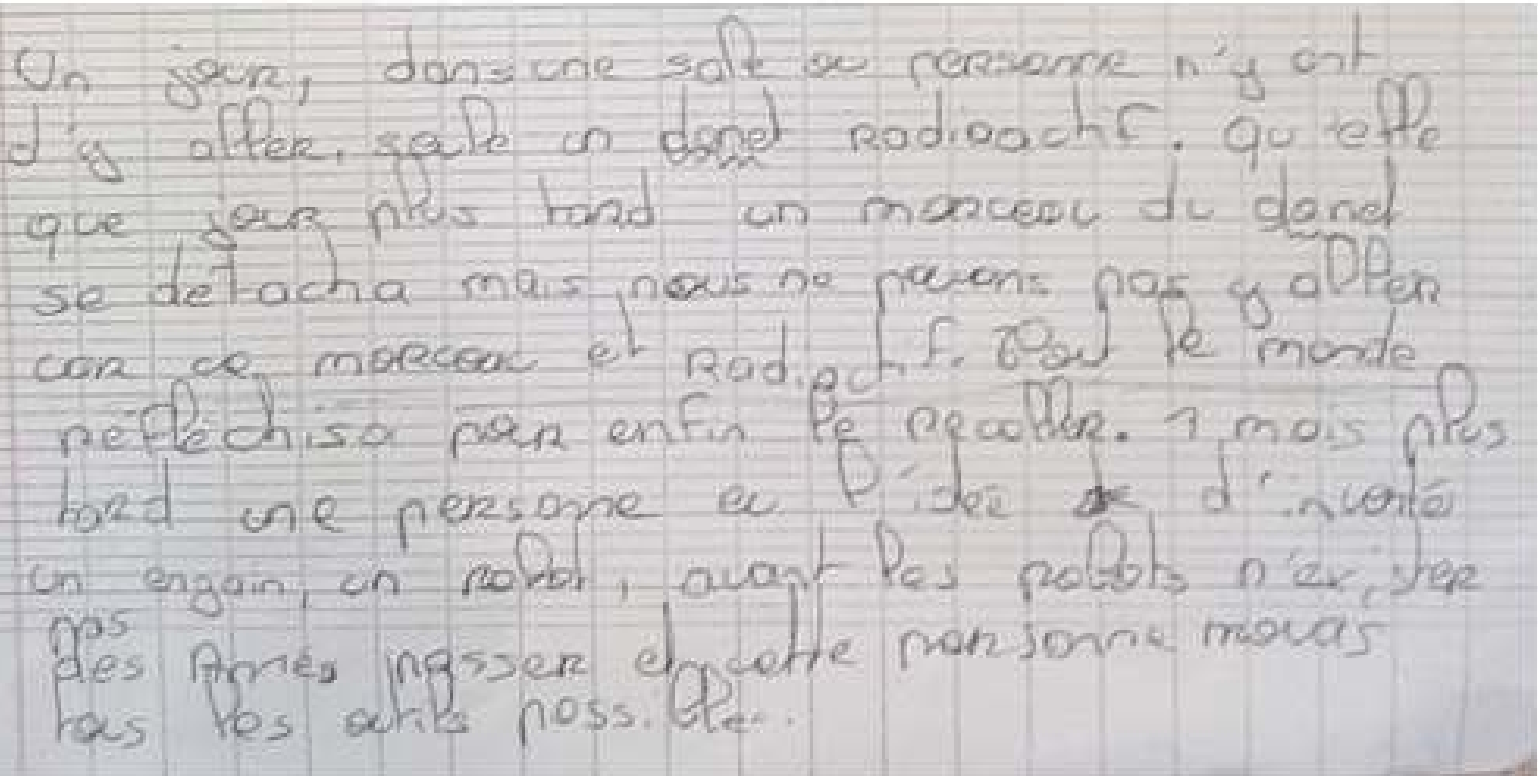 Un jour, dans une salle ou personne n'y ont
d'y aller, seule un donet Radioactif. Qu'elle
que jour plus tard un morceau du donet
se detacha mais nous ne pouvons pas y aller
car ce morceau et Radioactif. Tout le monde
réfléchisa pour enfin le récolter. 1 mois plus
tard une personne eu l'idée d'inventé
un engain, un robot, avant les robots n'exister
pas
des Années passer et cette personne
tous les outils possible.